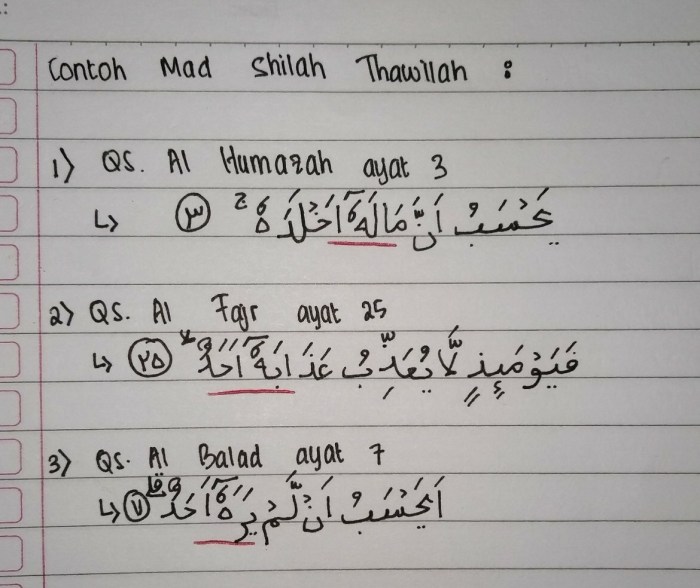 Contoh Mad Shilah Thawilah :
1) QS. Al Humazah ayat 3
↳ يَحْسَبُ اَنَّ مَالَهٗٓ اَخْلَدَهٗ ۚ ٣
2) QS. Al Fajr ayat 25
↳ فَيَوْمَىِٕذٍ لَّا يُعَذِّبُ عَذَابَهٗٓ اَحَدٌ ۙ ٢٥
3) QS. Al Balad ayat 7
↳ اَيَحْسَبُ اَنْ لَّمْ يَرَهٗٓ اَحَدٌ ۗ ٧